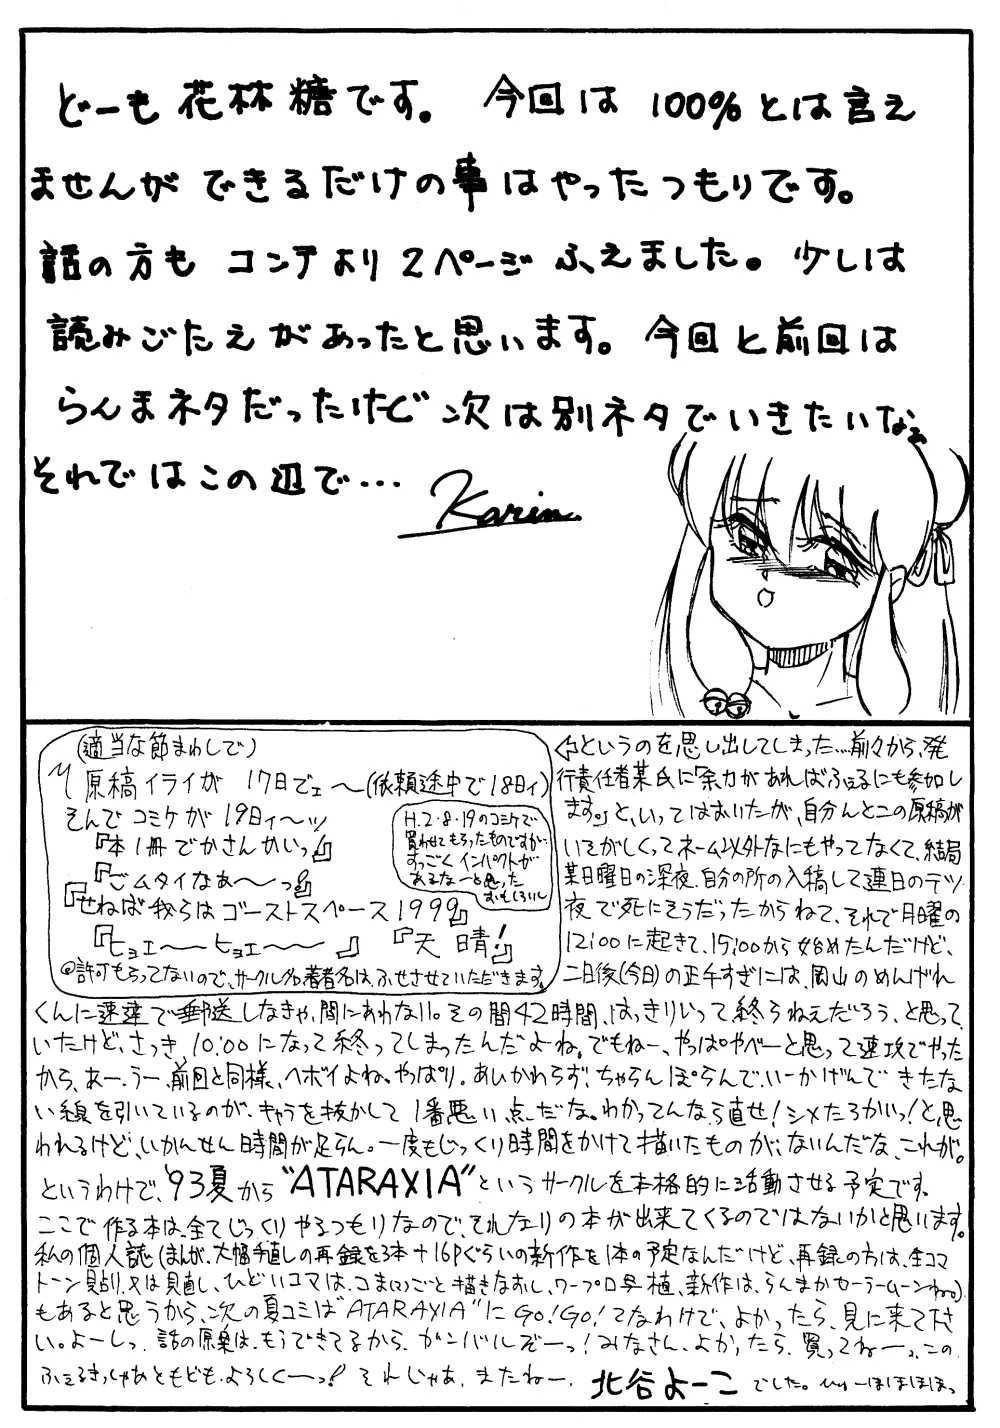 どーも 花林糖です。 今回は 100%とは言え
ませんが できるだけの事はやったつもりです。
話の方も コンテより 2ページ ふえました。少しは
読みごたえがあったと思います。今回と前回は
らんまネタだったけど 次は別ネタでいきたいなぁ
それではこの辺で…
Karin
(適当な節まわしで)
原稿イライが 17日でェ〜(依頼途中で18日ィ)
そんで コミケが 19日ィ〜ッ
『本1冊でかさんめいっ』
『ごムタイなあ〜〜っ!』
『せねば我らはゴーストスペース1999』
『ヒョエ〜〜 ヒョエ〜〜 』 『天晴!』
◎許可もらってないので、サークル名著者名は、ふせさせていただきます。
H.2・8・19のコミケで
買わせてもらったものですが…
すっごく インパクトが
あるなーと思った
おもしろいし
というのを思い出してしまった…前々から、発
行責任者某氏に「余力があればふぇるにも参加し
ます。」と、いってはおいたが、自分んとこの原稿が
いそがしくってネーム以外なにもやってなくて、結局
某日曜日の深夜、自分の所の入稿して連日のテツ
夜で死にそうだったからねて、それで月曜の
12:00に起きて、15:00から始めたんだけど、
二日後(今日)の正午すぎには、岡山のめんげれ
くんに速達で郵送しなきゃ、間にあわない。その間42時間、はっきりいって終らねえだろう、と思って
いたけど、さっき、10:00になって終ってしまったんだよね。でもねー、やっぱやべーと思って速攻でやった
から、あー、うー、前回と同様、ヘボイよね。やっぱり。あいかわらず、ちゃらんぽらんで、いーかげんで きたな
い線を引いているのが、キャラを抜かして1番悪い点だな。わかってんなら直せ!シメたろかいっ!と、思
われるけど、いかんせん時間が足らん。一度もじっくり時間をかけて描いたものが、ないんだな、これが。
というわけで、'93夏から "ATARAXIA"というサークルを本格的に活動させる予定です。
ここで作る本は、全てじっくりやるつもりなので、それなりの本が出来てくるのではないかと思います。
私の個人誌(まんが、大幅手直しの再録を3本+16Pぐらいの新作を1本の予定なんだけど、再録の方は、全コマ
トーン見貼り、又は見直し、ひどいコマは、コマごと描きなおし、ワープロ写植、新作は、らんまかセーラームーンねっ)
もあると思うから、次の夏コミは"ATARAXIA"にGO!GO!てなわけで、よかったら、見に来て下さ
い。よーしっ、話の原案は、もうできてるから、ガンバルぞーっ!みなさん、よかったら、買ってねーっ、この
ふぇるきっしゅあともども、よろしくーっ! それじゃあ、またねー、 北谷よーこ でした。 ほほほほほっ